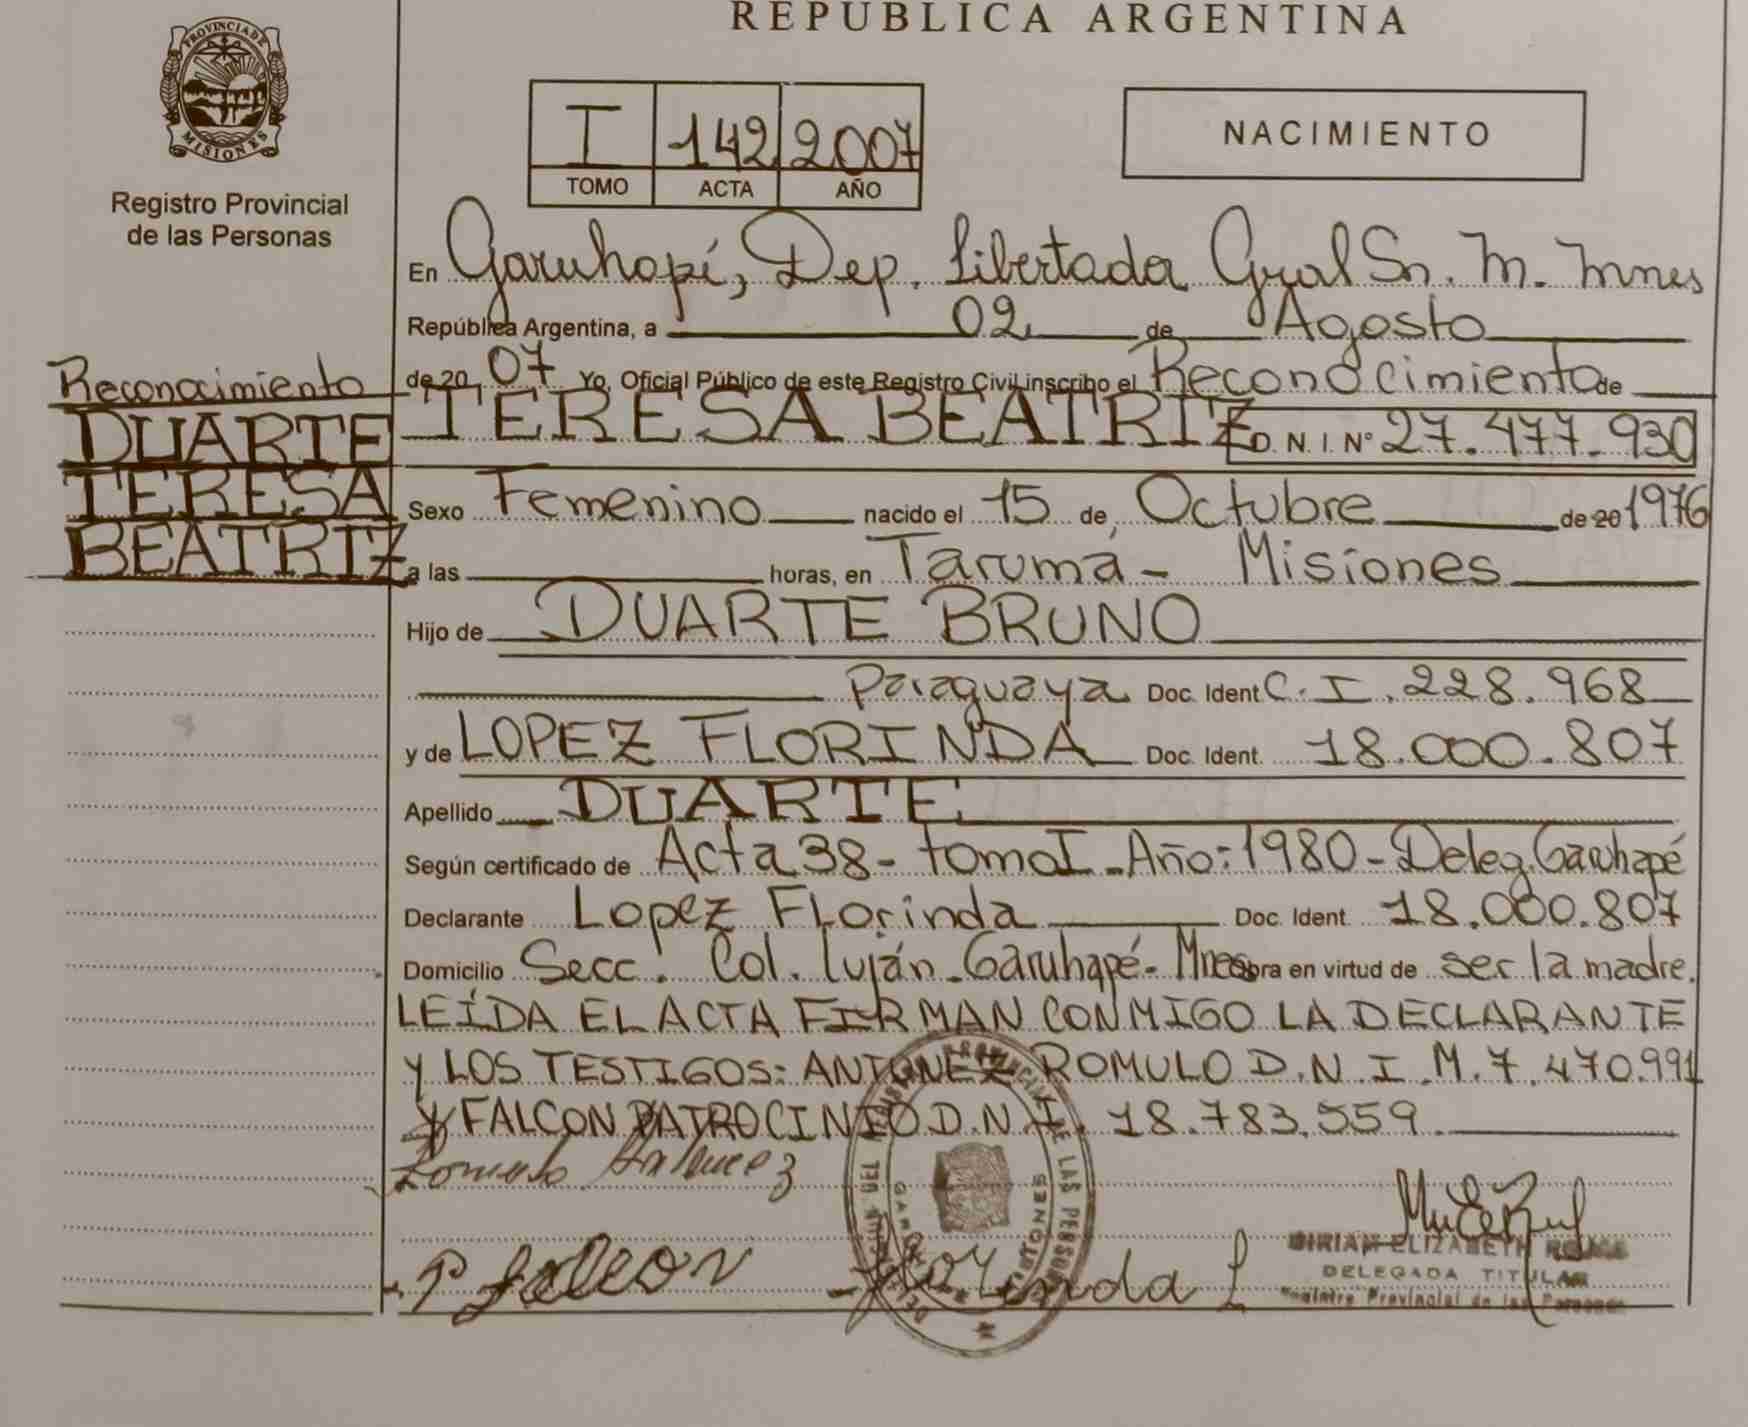 REPUBLICA ARGENTINA
PROVINCIA DE MISIONES
Registro Provincial
de las Personas
I 142 2007
TOMO ACTA AÑO
NACIMIENTO
En Garuhapí, Dep. Libertador Gral Sn. M. Mnes
República Argentina, a 02 de Agosto
de 20 07 Yo, Oficial Público de este Registro Civil inscribo el Reconocimiento de
TERESA BEATRIZ D. N. I. Nº 27.477.930
Reconocimiento
DUARTE
TERESA
BEATRIZ
Sexo Femenino nacido el 15 de Octubre de 20 1976
a las horas, en Tarumá - Misiones
Hijo de DUARTE BRUNO
Paraguaya Doc. Ident C. I. 228.968
y de LOPEZ FLORINDA Doc. Ident. 18.000.807
Apellido DUARTE
Según certificado de Acta 38 - tomo I - Año: 1980 - Deleg. Garuhapé
Declarante Lopez FLorinda Doc. Ident. 18.000.807
Domicilio Secc. Col. Luján - Garuhapé - Mnes obra en virtud de ser la madre.
LEÍDA EL ACTA FIRMAN CONMIGO LA DECLARANTE
y LOS TESTIGOS: ANTUNEZ ROMULO D.N.I.M. 7.470.991
y FALCON PATROCINIO D.N.I. 18.783.559
P Falcon
Florinda L
MIRIAM ELIZABETH
DELEGADA TITULAR
Registro Provincial de las Personas